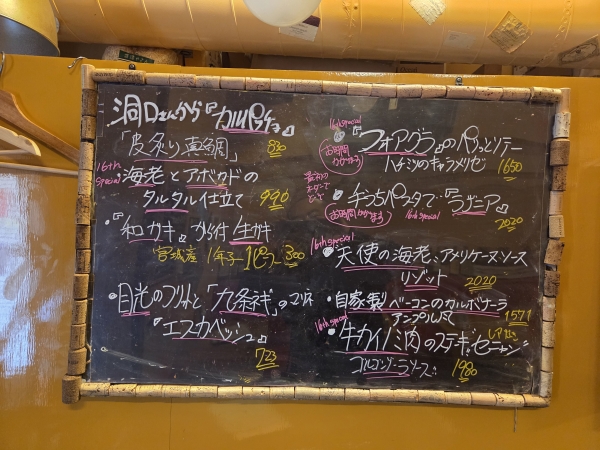 洞口さんから『カルパッチョ』
「皮炙り真鯛」 830
16th special
・海老とアボカドの
タルタル仕立て 990
・『和ガキ』がら付生ガキ
宮城産 1年子 1ピ 300
・目光のフリットと「九条ネギ」のマリネ
『エスカベッシュ』
723
16th special
・『フォアグラ』のパッとソテー
お時間かかります
ハチミツのキャラメリゼ 1650
最初のオーダーで
・手打ちパスタで『ラザニア』
お時間かかります 16th special 2020
16th special
・天使の海老、アメリケーヌソース
リゾット 2020
・自家製ベーコンのカルボナーラ
1571
16th special
・牛カイノミ肉のステーキ
ゴルゴンゾーラソース 1980